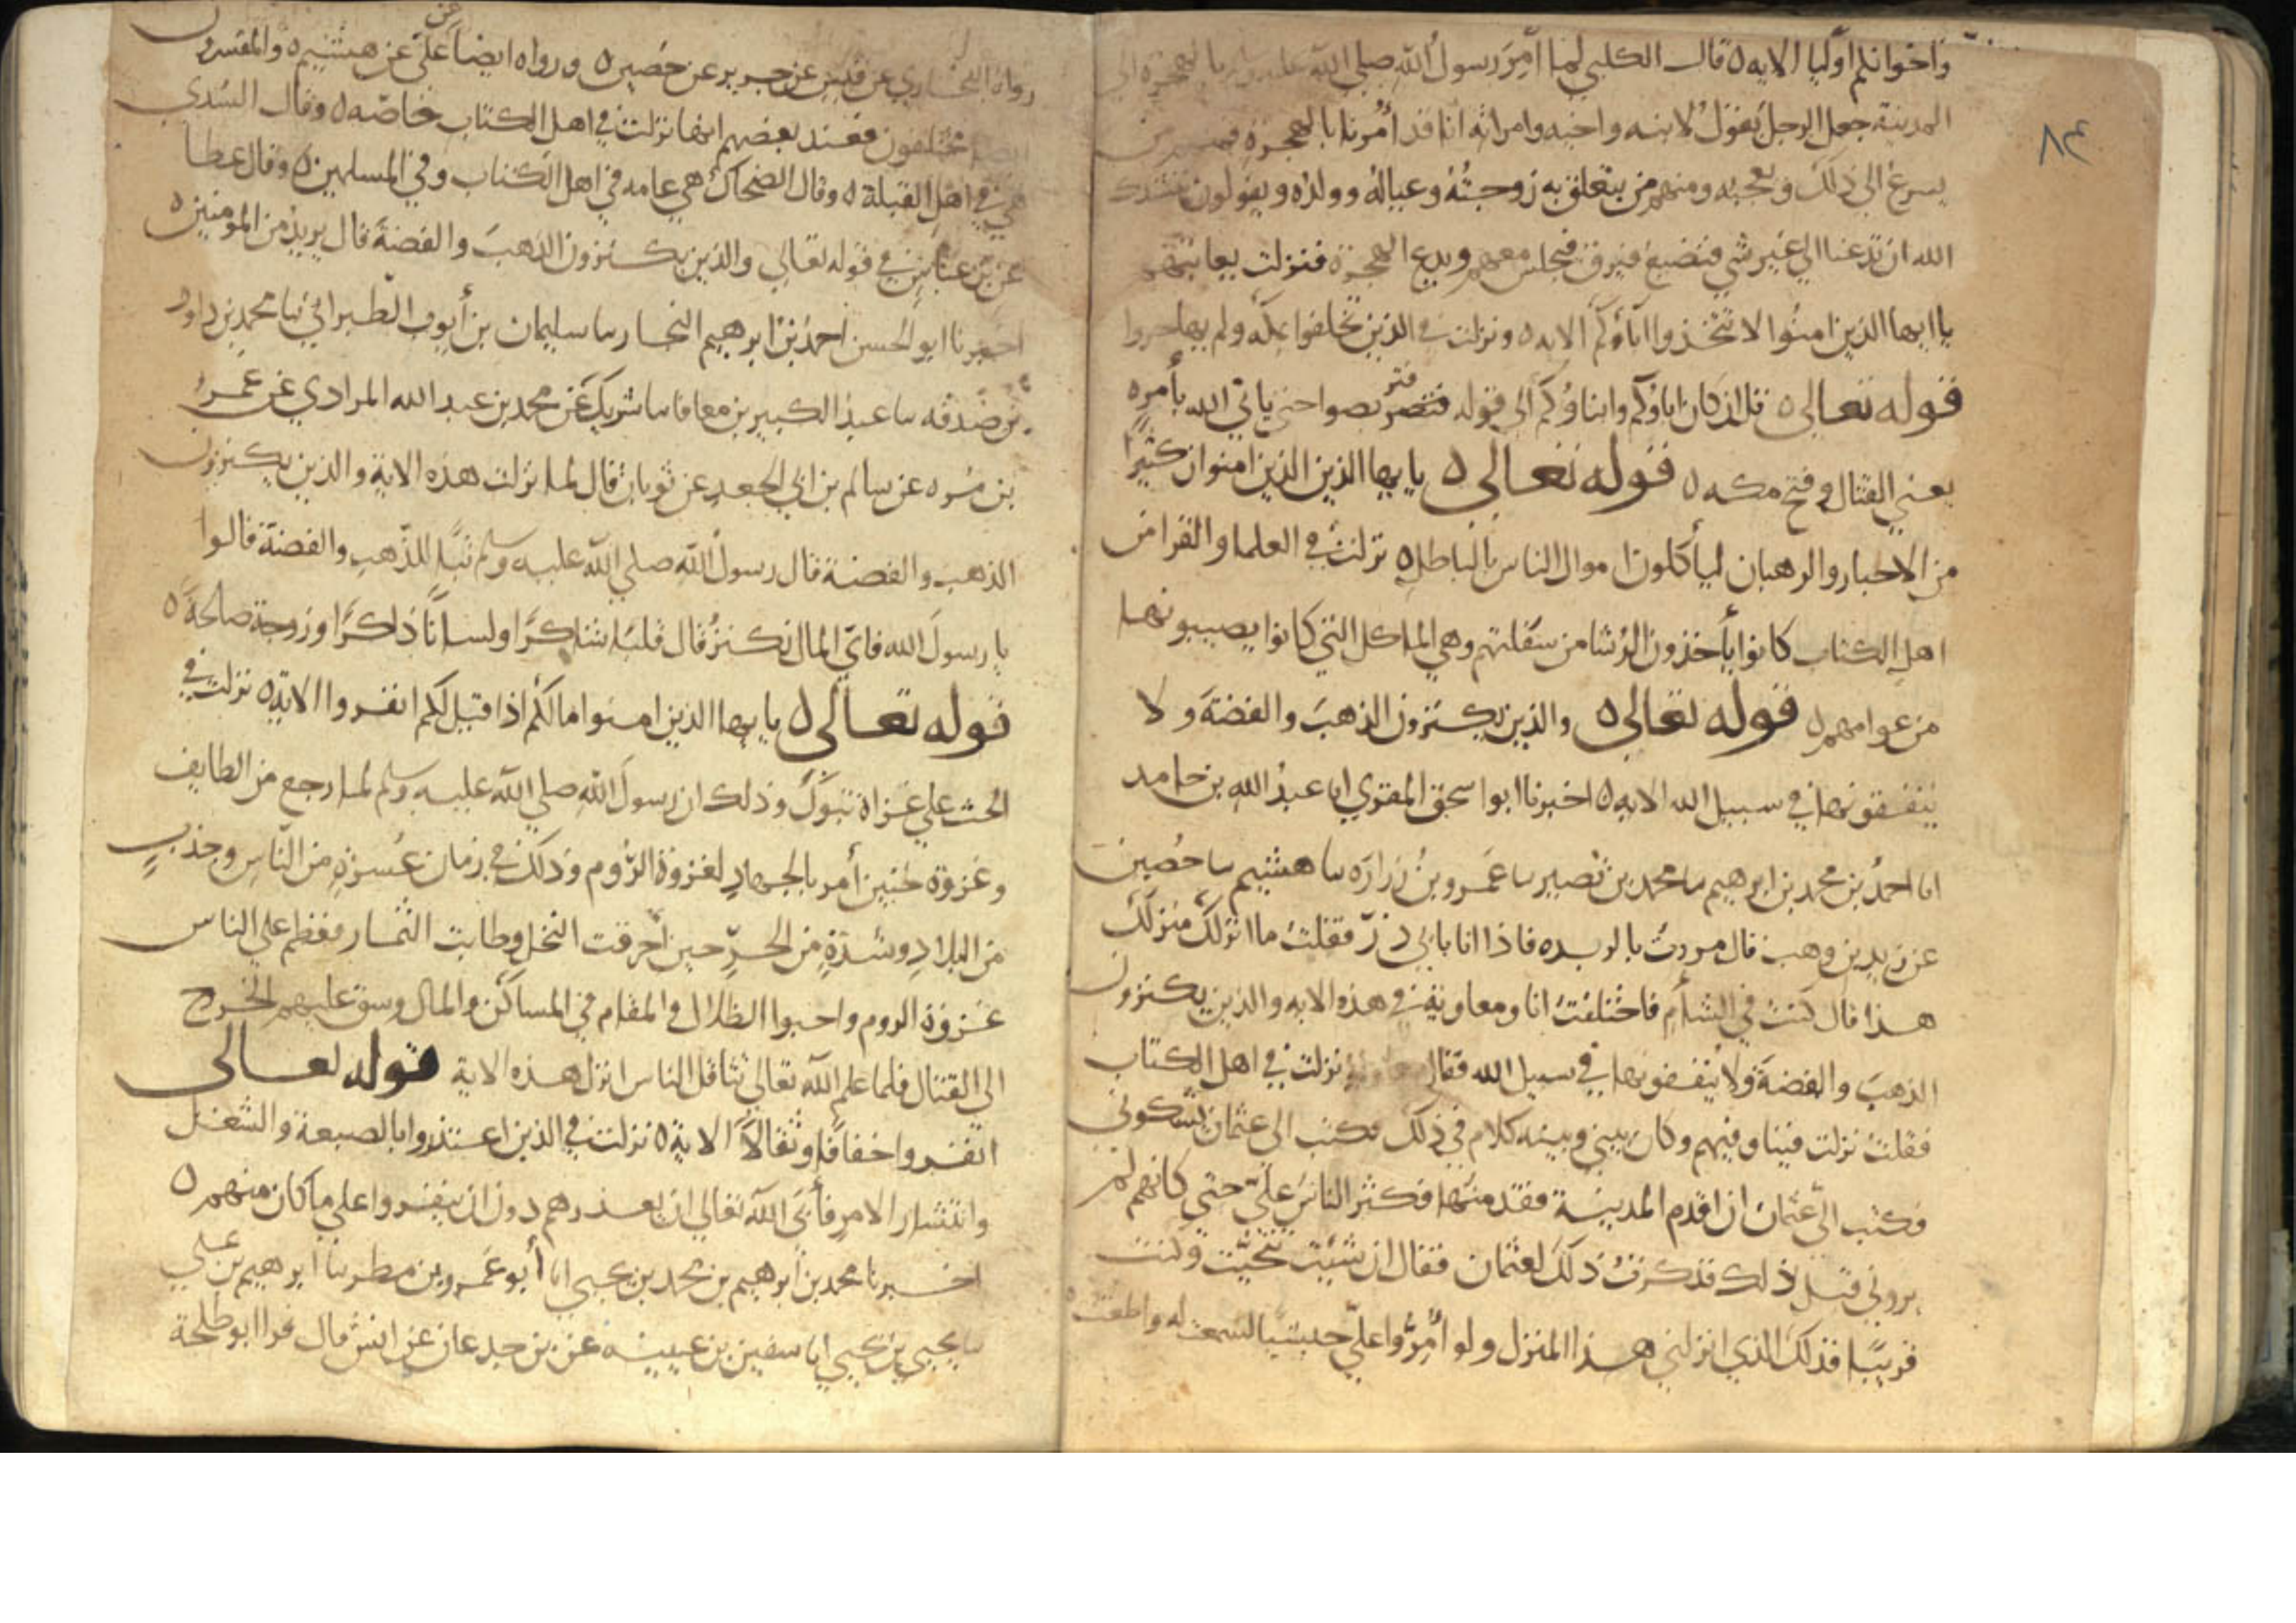 واخوانكم اوليا الايه ه قال الكلبي لما أمر رسول الله صلي الله عليه وسلم بالهجرة الي
المدينة جعل الرجل يقول لابنه واخيه وامراته انا قد أُمرنا بالهجرة فمنهم من
يسرع الي ذلك ويعجبه ومنهم من يتعلق به زوجته وعياله وولده ويقولون ننشدك
الله ان تدعنا الي غير شي فنضيع فيرق فيجلس معهم ويدع الهجرة فنزلت يعاتبهم
ياايها الذين امنوا لا تتخذوا اباؤكم الايه ه ونزلت في الذين تخلفوا بمكه ولم يهاجروا
قوله تعالى ه قل ان كان اباؤكم وابناؤكم الي قوله فتربصوا حتي ياتي الله بأمره
يعني القتال وفتح مكه ه قوله تعالى ه يا يها الذين الذين امنوا ان كثيرًا
من الاحبار والرهبان ليأكلون اموال الناس بالباطل ه نزلت في العلما والقرا من
اهل الكتاب كانوا يأخذون الرشا من سفلتهم وهي الماكل التي كانوا يصيبونها
من عوامهم ه قوله تعالى ه والذين يكنزون الذهبَ والفضةَ ولا
ينفقونها في سبيل الله الايه ه اخبرنا ابو اسحق المقري ابا عبدُ الله بن حامد
انا احمدُ بن محمد بن ابرهيم سا محمد بن نصير سا عَمرو بنُ زرارَه سا هشيم سا حُصين
عن زيد بن وهب قال مررتُ بالربده فاذا انا بابي ذرّ فقلتُ ما انزلك منزلك
هذا قال كنتُ في الشأم فاختلفتُ انا ومعاوية في هذه الايه والذين يكنزون
الذهبَ والفضةَ ولا ينفقونها في سبيل الله فقال معاوية نزلت في اهل الكتاب
فقلتُ نزلت فينا وفيهم وكان بيني وبينه كلام في ذلك فكتب الي عثمان يشكوني
فكتب اليّ عثمان ان اقدم المدينة فقدمتها فكثر الناسُ عليّ حتي كانهم لم
يروني قبل ذلك فذكرتُ ذلك لعثمان فقال ان شيت تنحّيت وكنت
قريبًا فذلك الذي انزلني هذا المنزل ولو أمّرُوا عليّ حبشيا لسمعت له واطعت ه
رواهُ البخاري عن قتيبة عن جرير عن حُصين ه ورواه ايضا عن عليّ عن هشيم ه والمفسرون
مختلفون فعند بعضهم انها نزلت في اهل الكتاب خاصّه ه وقال السُدي
هي في اهل القبلة ه وقال الضحاك هي عامه في اهل الكتاب وفي المسلمين ه وقال عطا
عن بن عباس في قوله تعالي والذين يكنزون الذهبَ والفضةَ قال يريد من المومنين ه
اخبرنا ابو الحسن احمدُ بنُ ابرهيم النجار سا سليمان بن أيوب الطبراني سا محمد بن داود
بن صَدقه سا عبدُ الكبير بن معافا سا شريك عن محمد بن عبد الله المرادي عن عمرو
بن مُره عن سالم بن ابي الجعد عن ثوبان قال لما نزلت هذه الاية والذين يكنزون
الذهب والفضة قال رسولُ الله صلي الله عليه وسلم تبًّا للذّهب والفضة قالوا
يا رسولَ الله فايّ المال نكنزُ قال قلبًا شاكرًا ولسانًا ذاكرًا وزوجة صالحةً ه
قوله تعالى ه يا يها الذين امنوا مالكم اذا قيل لكم انفروا الاية ه نزلت في
الحث علي غزاة تبوكَ وذلك ان رسولَ الله صلي الله عليه وسلم لما رجع من الطايف
وغزوة حُنين أمر بالجهادِ لغزوة الرُوم وذلك في زمان عُسرةٍ من النّاسِ وجذبٍ
من البلادِ وشدّةٍ من الحرّ حين أخرقت النخل وطابت الثمار فعَظم علي الناس
غزوة الروم واحبوا الظلال والمقام في المساكن والمال وسق عليهم الخروج
الي القتال فلما علم الله تعالي تثاقل الناس انزل هذه الاية قوله تعالى
انفروا خفافًا وثقالاً الاية ه نزلت في الذين اعتذروا بالصبعة والشغل
وانتشار الامر فأبي الله تعالي ان يعذرهم دون ان ينفروا علي ما كان منهم ه
اخبرنا محمد بن ابرهيم بن محمد بن يحيي انا أبو عَمرو بن مطر سا ابرهيم بن علي
سا يحيي بن يحيي ابا سفين بن عيينه عن بن جدعان عن انس قال قرا ابو طلحة